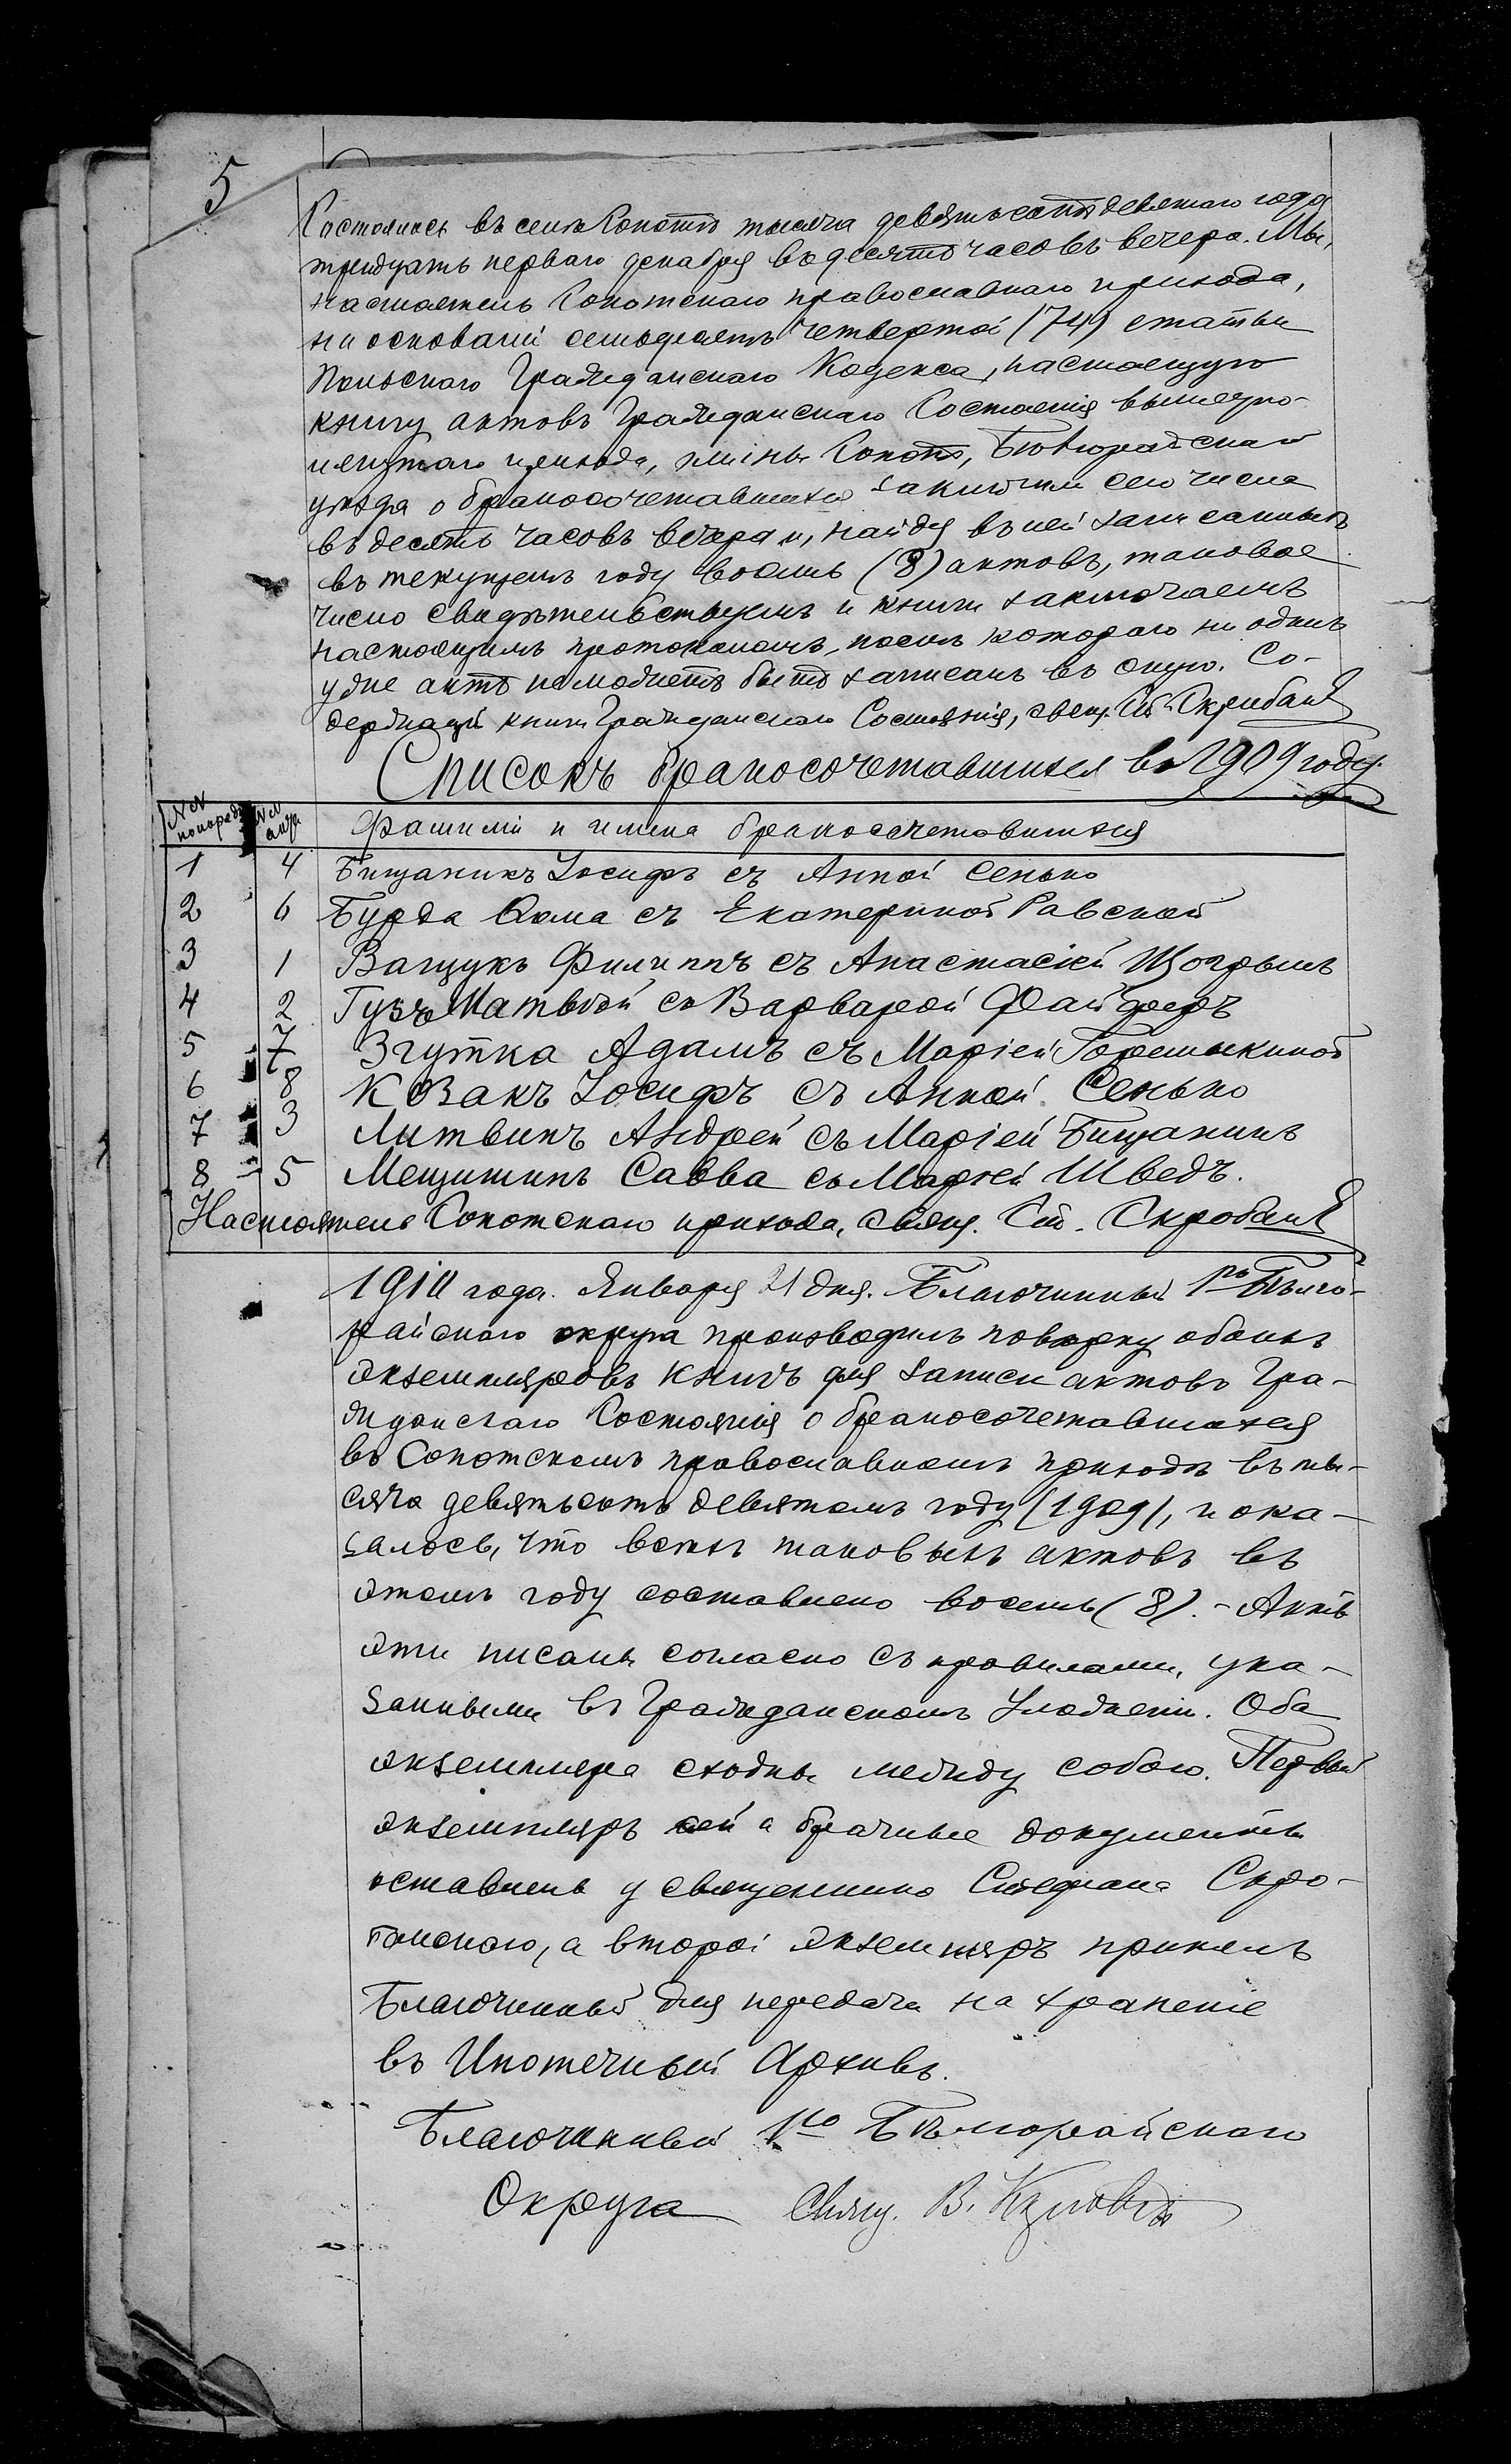 5
Состоялось въ селѣ Сопотѣ тысяча девятьсотъ девятаго года
тридцать перваго декабря въ десять часовъ вечера. Мы,
настоятель Сопотскаго православнаго прихода,
на основаніи семьдесятъ четвертой (74) статьи
Польскаго Гражданскаго Кодекса, настоящую
книгу актовъ Гражданскаго Состоянія вышеупо-
мянутаго прихода, гмины Сопотъ, Бѣлгорайскаго
уѣзда о бракосочетавшихся заключили сего числа
въ десять часовъ вечера и, найдя въ ней записанныхъ
въ текущемъ году восемь (8) актовъ, таковое
число свидѣтельствуемъ и книги заключаемъ
настоящимъ протоколомъ, послѣ котораго ни одинъ
уже актъ не можетъ быть записанъ въ оную. Со-
держащій книги Гражданскаго Состоянія, свящ. Ст. Скробан
Списокъ бракосочетавшихся въ 1909 году.
NN попоряд. NN акта Фамиліи и имена бракосочетавшихся
1 4 Бищаникъ Іосифъ съ Анной Сенько
2 6 Бурда Ѳома съ Екатериной Равской
3 1 Ващукъ Филиппъ съ Анастасіей Щогрынъ
4 2 Гузъ Матвѣй съ Варварой Файферъ
5 7 Згутка Адамъ съ Маріей Горемыкиной
6 8 Козакъ Іосифъ съ Анной Сенько
7 3 Литвинъ Андрей съ Маріей Бищаникъ
8 5 Мещишинъ Савва съ Маріей Шведъ.
Настоятель Сопотскаго прихода, свящ. Ст. Скробан
1910 года. Января 21 дня. Благочинный 1го Бѣлго-
райскаго округа производилъ повѣрку обоихъ
экземпляровъ книгъ для записи актовъ Гра-
жданскаго Состоянія о бракосочетавшихся
въ Сопотскомъ православномъ приходѣ въ ты-
сяча девятьсотъ девятомъ году (1909), и ока-
залось, что всѣхъ таковыхъ актовъ въ
этомъ году составлено восемь (8). - Акты
эти писаны согласно съ правилами, ука-
занными въ Гражданскомъ Уложеніи. Оба
экземпляра сходны между собою. Первый
экземпляръ сей и брачные документы
оставлены у священника Стефана Скро-
банскаго, а второй экземпляръ принялъ
Благочинный для передачи на храненіе
въ Ипотечный Архивъ.
Благочинный 1го Бѣлгорайскаго
Округа Свящ. В.